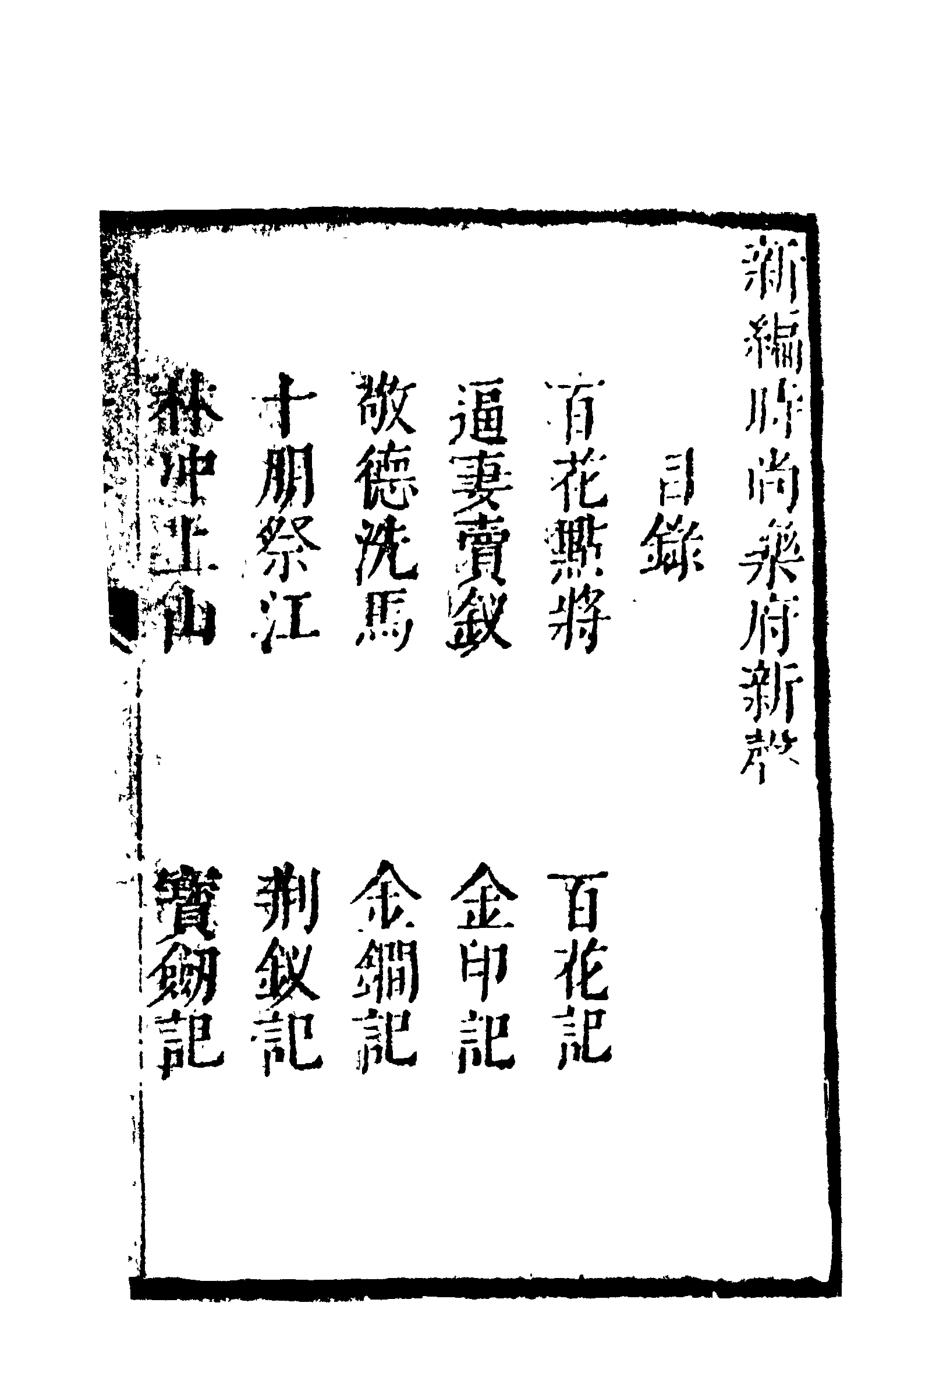 新編時尚樂府新聲
目錄
百花點將　百花記
逼妻賣釵　金印記
敬德洗馬　金鐧記
十朋祭江　荆釵記
林冲上山　寶劔記